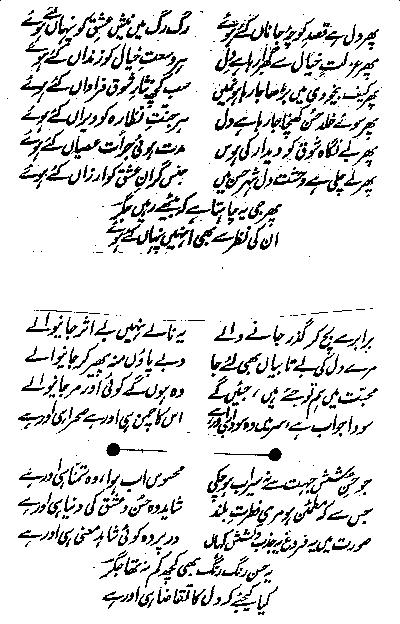 پھر دل ہے قصدِ کوچۂ جاناں کئے ہوئے رگ رگ میں نیشِ عشق کو پنہاں کئے ہوئے
پھر عزلتِ خیال سے گھبرا رہا ہے دل ہر وسعتِ خیال کو زنداں کئے ہوئے
پھر کیفِ بیخودی میں بڑھا جا رہا ہوں میں سب کچھ نثارِ شوقِ فراواں کئے ہوئے
پھر سوئے خلدِ حسن کھنچا جا رہا ہے دل ہر جنتِ نظارہ کو ویراں کئے ہوئے
پھر ہے نگاہِ شوق کو دیدار کی ہوس مدت ہوئی جرأتِ عصیاں کئے ہوئے
پھر لے چلی ہے وحشتِ دل شہرِ حسن میں جنسِ گرانِ عشق کو ارزاں کئے ہوئے
پھر جی یہ چاہتا ہے کہ بیٹھے رہیں جگر
ان کی نظر سے بھی انہیں پنہاں کئے ہوئے
برابر سے بچ کر گذر جانے والے یہ نالے نہیں بے اثر جانیوالے
مرے دل کی بے تابیاں بھی لئے جا دبے پاؤں منہ پھیر کر جانیوالے
محبت میں ہم تو جئے ہیں، جئیں گے وہ ہوں گے کوئی اور مر جانیوالے
سودا جو اب ہے، سر میں وہ سودا ہی اور ہے اس کا چمن ہی اور ہے صحرا ہی اور ہے
جو حسن کشش جہت سے نہ سیراب ہو چکی محسوس اب ہوا، وہ تمنا ہی اور ہے
جس سے کہ مطمئن ہو مری فطرتِ بلند شاید وہ حسن و عشق کی دنیا ہی اور ہے
صورت میں یہ فروغ یہ جذب و کشش کہاں در پردہ کوئی شاہدِ معنی ہی اور ہے
یہ حسن رنگ رنگ بھی کچھ کم نہ تھا جگر
کیا کیجئے کہ دل کا تقاضا ہی اور ہے